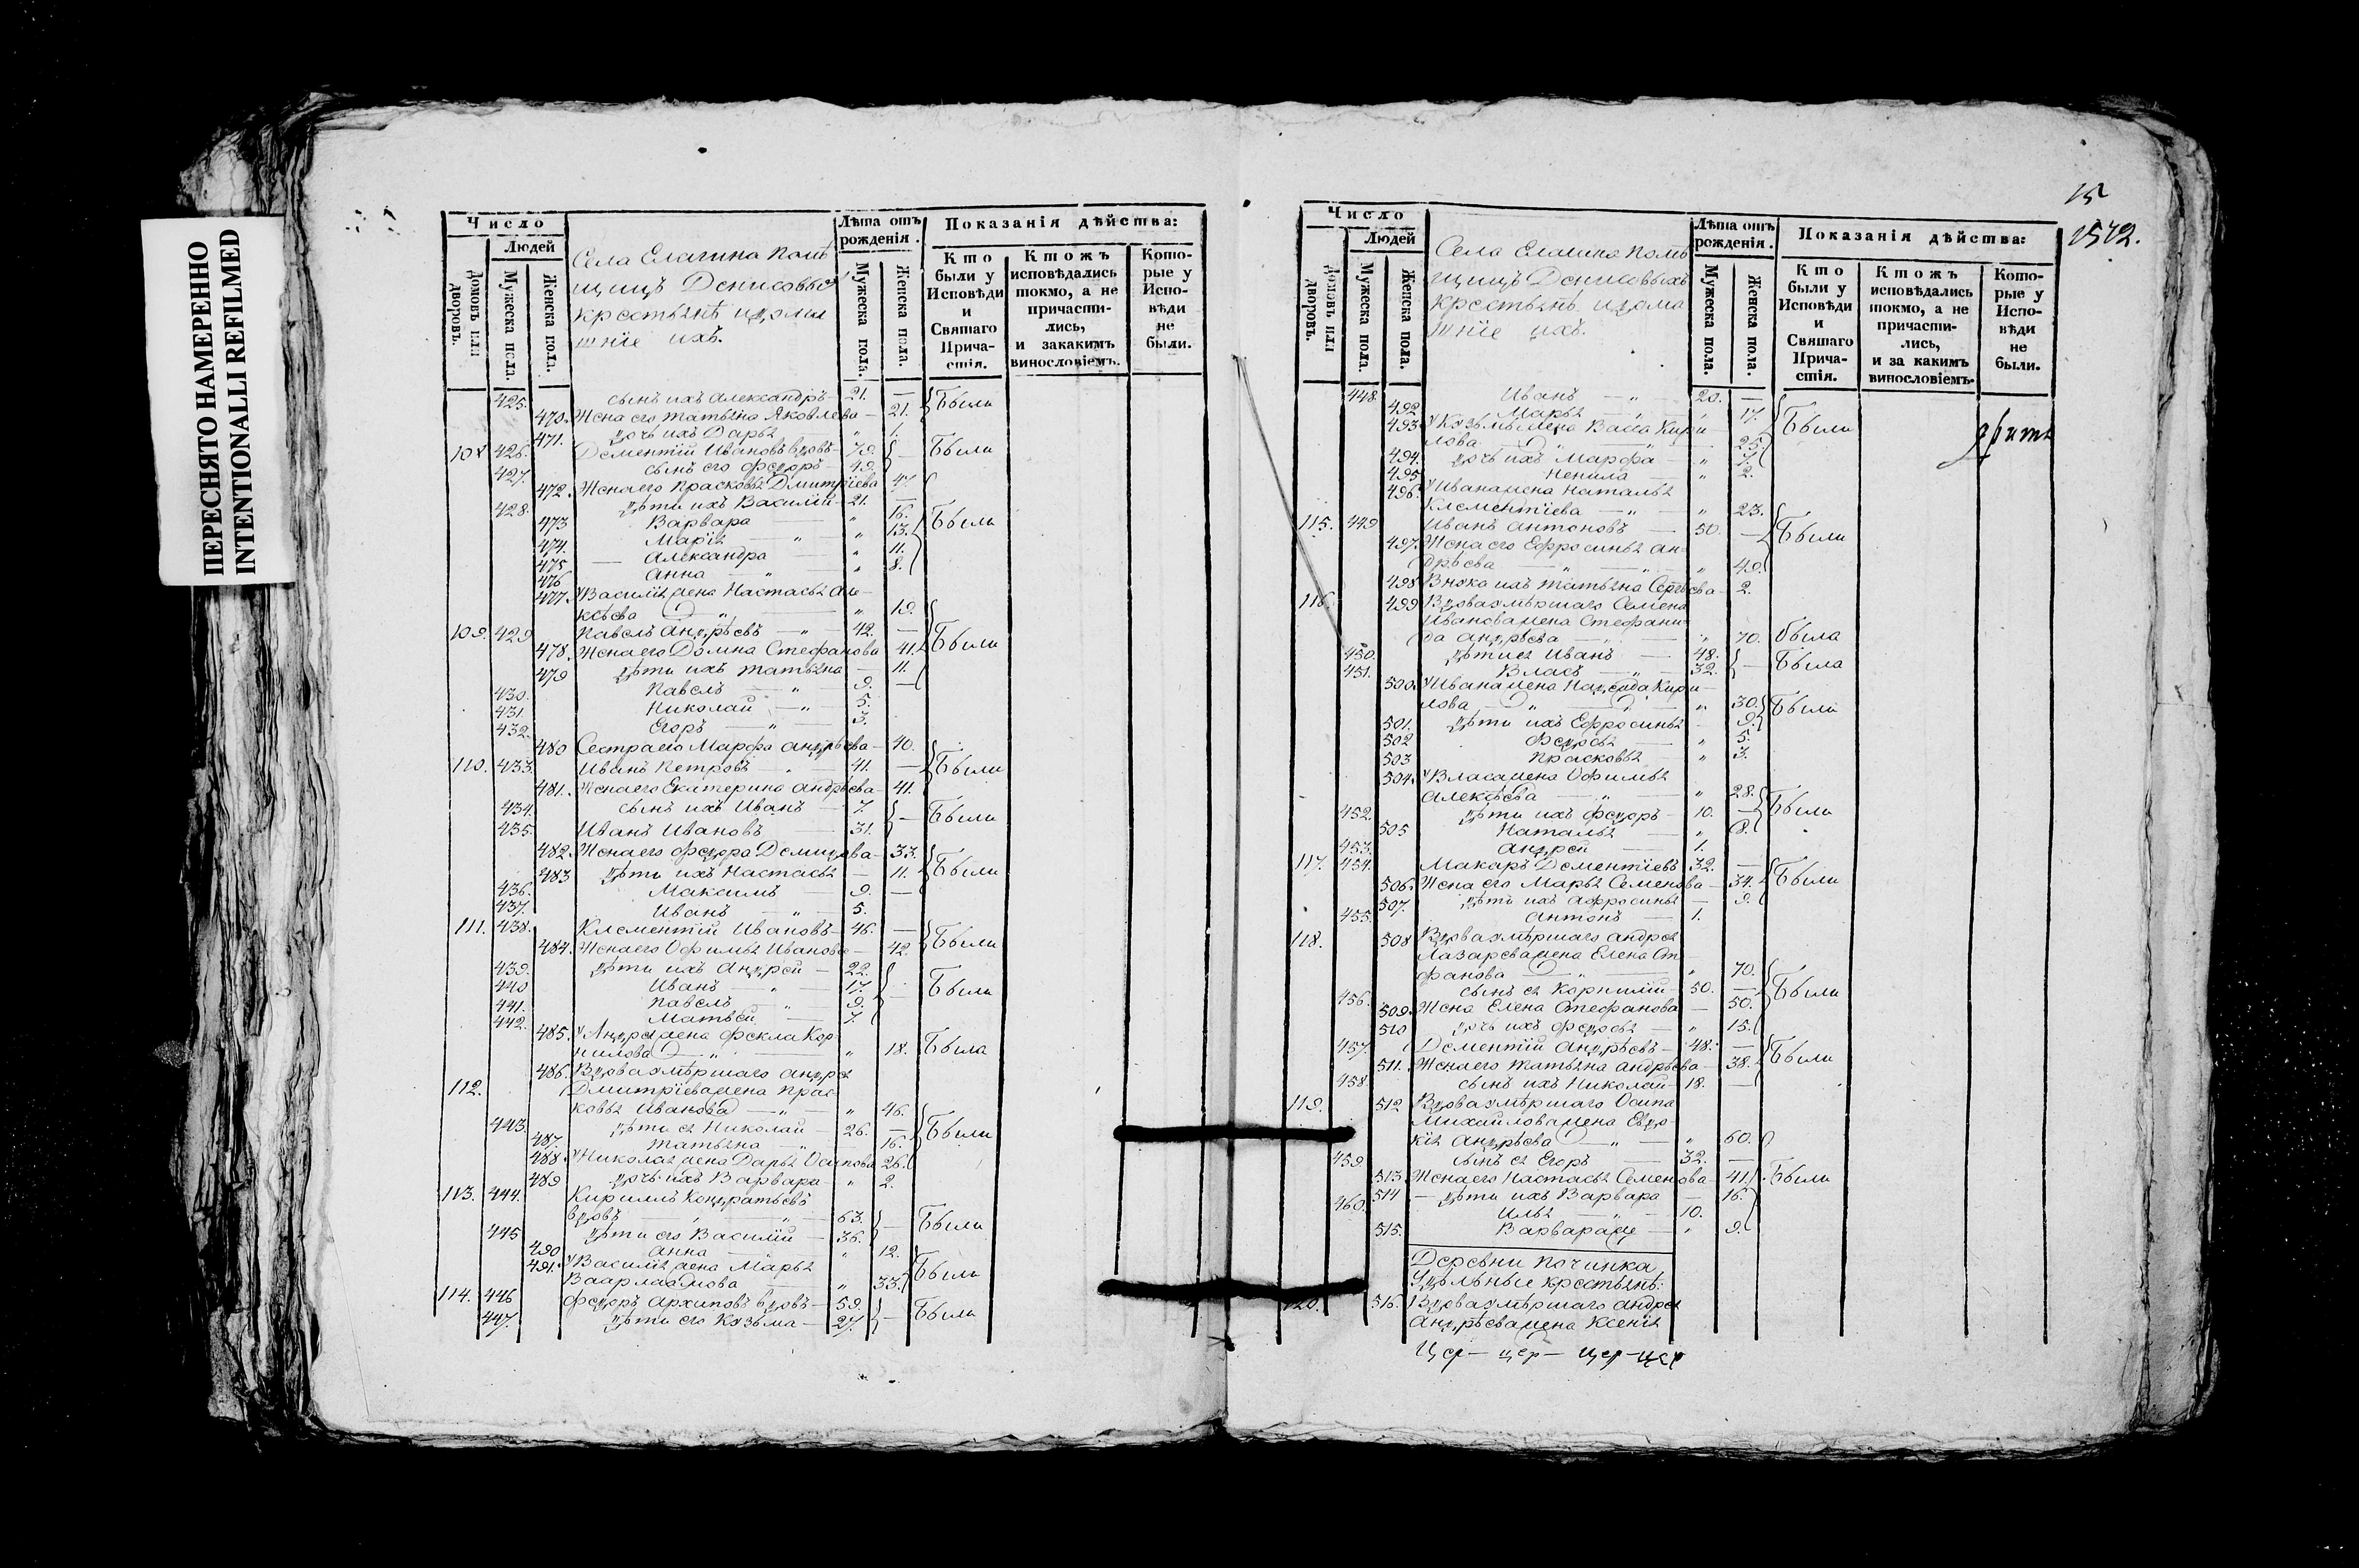 ПЕРЕСНЯТО НАМЕРЕННО
INTENTIONALLI REFILMED
Число
Людей
Домовъ или дворовъ.
Мужеска пола.
Женска пола.
Села Елагина помѣ
щицъ Денисовыхъ
крестьянѣ идома
шніе ихъ.
Лѣта отъ рожденія.
Мужеска пола.
Женска пола.
Показанія дѣйства:
Кто были у Исповѣди и Святаго Причастія.
Ктожъ исповѣдались токмо, а не причастились, и закакимъ винословіемъ.
Которые у Исповѣди не были.
425. сынъ ихъ Александръ 21. — Были
470. Жена его Татьяна Яковлева — 21.
471. дочь ихъ Дарья „ 1.
108 426. Дементій Ивановъ вдовъ 79. — Были
427. сынъ его Федоръ 49.
472. Жена его Прасковья Дмитріева 47.
428. дѣти ихъ Василій 21. — Были
473 Варвара „ 16.
474. Марія „ 13.
475 Александра „ 11.
476 Анна „ 8.
477. Василія жена Настасья Але
ксѣева „ 19.
109. 429 Павелъ Андрѣевъ 42. — Были
478. Жена его Домна Стефанова 41.
479 дѣти ихъ Татьяна — 11.
430. Павелъ 9. —
431 Николай 5.
432. Егоръ 3.
480 Сестра его Марфа Андрѣева — 40.
110. 433. Иванъ Петровъ 41. — Были
481. Жена его Екатерина Андрѣева 41.
434. сынъ ихъ Иванъ 7. — Были
435. Иванъ Ивановъ 31.
482. Жена его Федора Демидова — 33. Были
483 дѣти ихъ Настасья — 11.
436. Максимъ 9. —
437. Иванъ 5.
111. 438. Клементій Ивановъ 46. — Были
484. Жена его Офимья Иванова — 42.
439. дѣти ихъ Андрей — 22. Были
440 Иванъ 17.
441. Павелъ 9.
442. Матвѣй 7.
485. Андрея жена Фекла Кор
нилова „ 18. Была
486. Вдова умѣршаго Андрея
112. Дмитріева жена Прас
ковья Иванова — „ 46.
443. дѣти ея Николай 26. — Были
487. Татьяна 16.
488. Николая жена Дарья Осипова 26.
489 дочь ихъ Варвара „ 2.
113. 444. Кириллъ Кондратьевъ
вдовъ 63. — Были
445 дѣти его Василій 36.
490 Анна „ 12.
491. Василія жена Марья
Ваарлаамова „ 33. Были
114. 446 Федоръ Архиповъ вдовъ — 59. — Были
447. дѣти его Козьма — 27.
15
1572.
Число
Людей
Домовъ или дворовъ.
Мужеска пола.
Женска пола.
Села Елагина помѣ
щицъ Денисовыхъ
крестьянѣ идома
шніе ихъ.
Лѣта отъ рожденія.
Мужеска пола.
Женска пола.
Показанія дѣйства:
Кто были у Исповѣди и Святаго Причастія.
Ктожъ исповѣдались токмо, а не причастились, и за какимъ винословіемъ.
Которые у Исповѣди не были.
448. Иванъ — 20. —
492 Марья „ 17. Были
493. Козьмы жена Васса Кири
лова „ 25.
494. дочь ихъ Марфа „ 7.
495 Ненила „ 2.
496. Ивана жена Наталья
Клементіева — „ 23.
115. 449 Иванъ Антоновъ 50. — Были
497. Жена его Ефросинья Ан
дрѣева „ 49.
498 Внука ихъ Татьяна Сергѣева 2.
116. 499 Вдова умѣршаго Семена
Иванова жена Стефани
да Андрѣева „ 70. была
450. дѣти ея Иванъ 48. — Была
451. Власъ 32.
500. Ивана жена Надежда Кири
лова „ 30. Были
501. дѣти ихъ Ефросинья 9.
502 Федосья „ 5.
503 Прасковья „ 3.
504. Власа жена Офимья
Алексѣева „ 28.
452. дѣти ихъ Федоръ 10. — Были
505 Наталья „ 8.
453. Андрей 1.
117. 454. Макаръ Дементіевъ 32. —
506. Жена его Марья Семенова — 34. Были
507. дѣти ихъ Афросинья — 9.
455. Антонъ 1.
118. 508 Вдова умѣршаго Андрея
Лазарева жена Елена Сте
фанова „ 70.
456. сынъ ея Корнилій 50. — Были
509. Жена Елена Стефанова — 50.
510 дочь ихъ Федосья „ 15.
457. Дементій Андрѣевъ 48. —
511. Жена его Татьяна Андрѣева 38. Были
458. сынъ ихъ Николай 18. —
119. 512 Вдова умѣршаго Осипа
Михайлова жена Евдо
кія Андрѣева „ 60.
459 сынъ ея Егоръ 32. —
513. Жена его Настасья Семенова 41. Были
514 дѣти ихъ Варвара — 16.
460. Илья 10.
515. Варвара же „ 9.
Деревни Починка
Удѣльные крестьянѣ:
120. 516. Вдова умѣршаго Андрея
Андрѣева жена Ксенія
Цер— цер— цер—цер